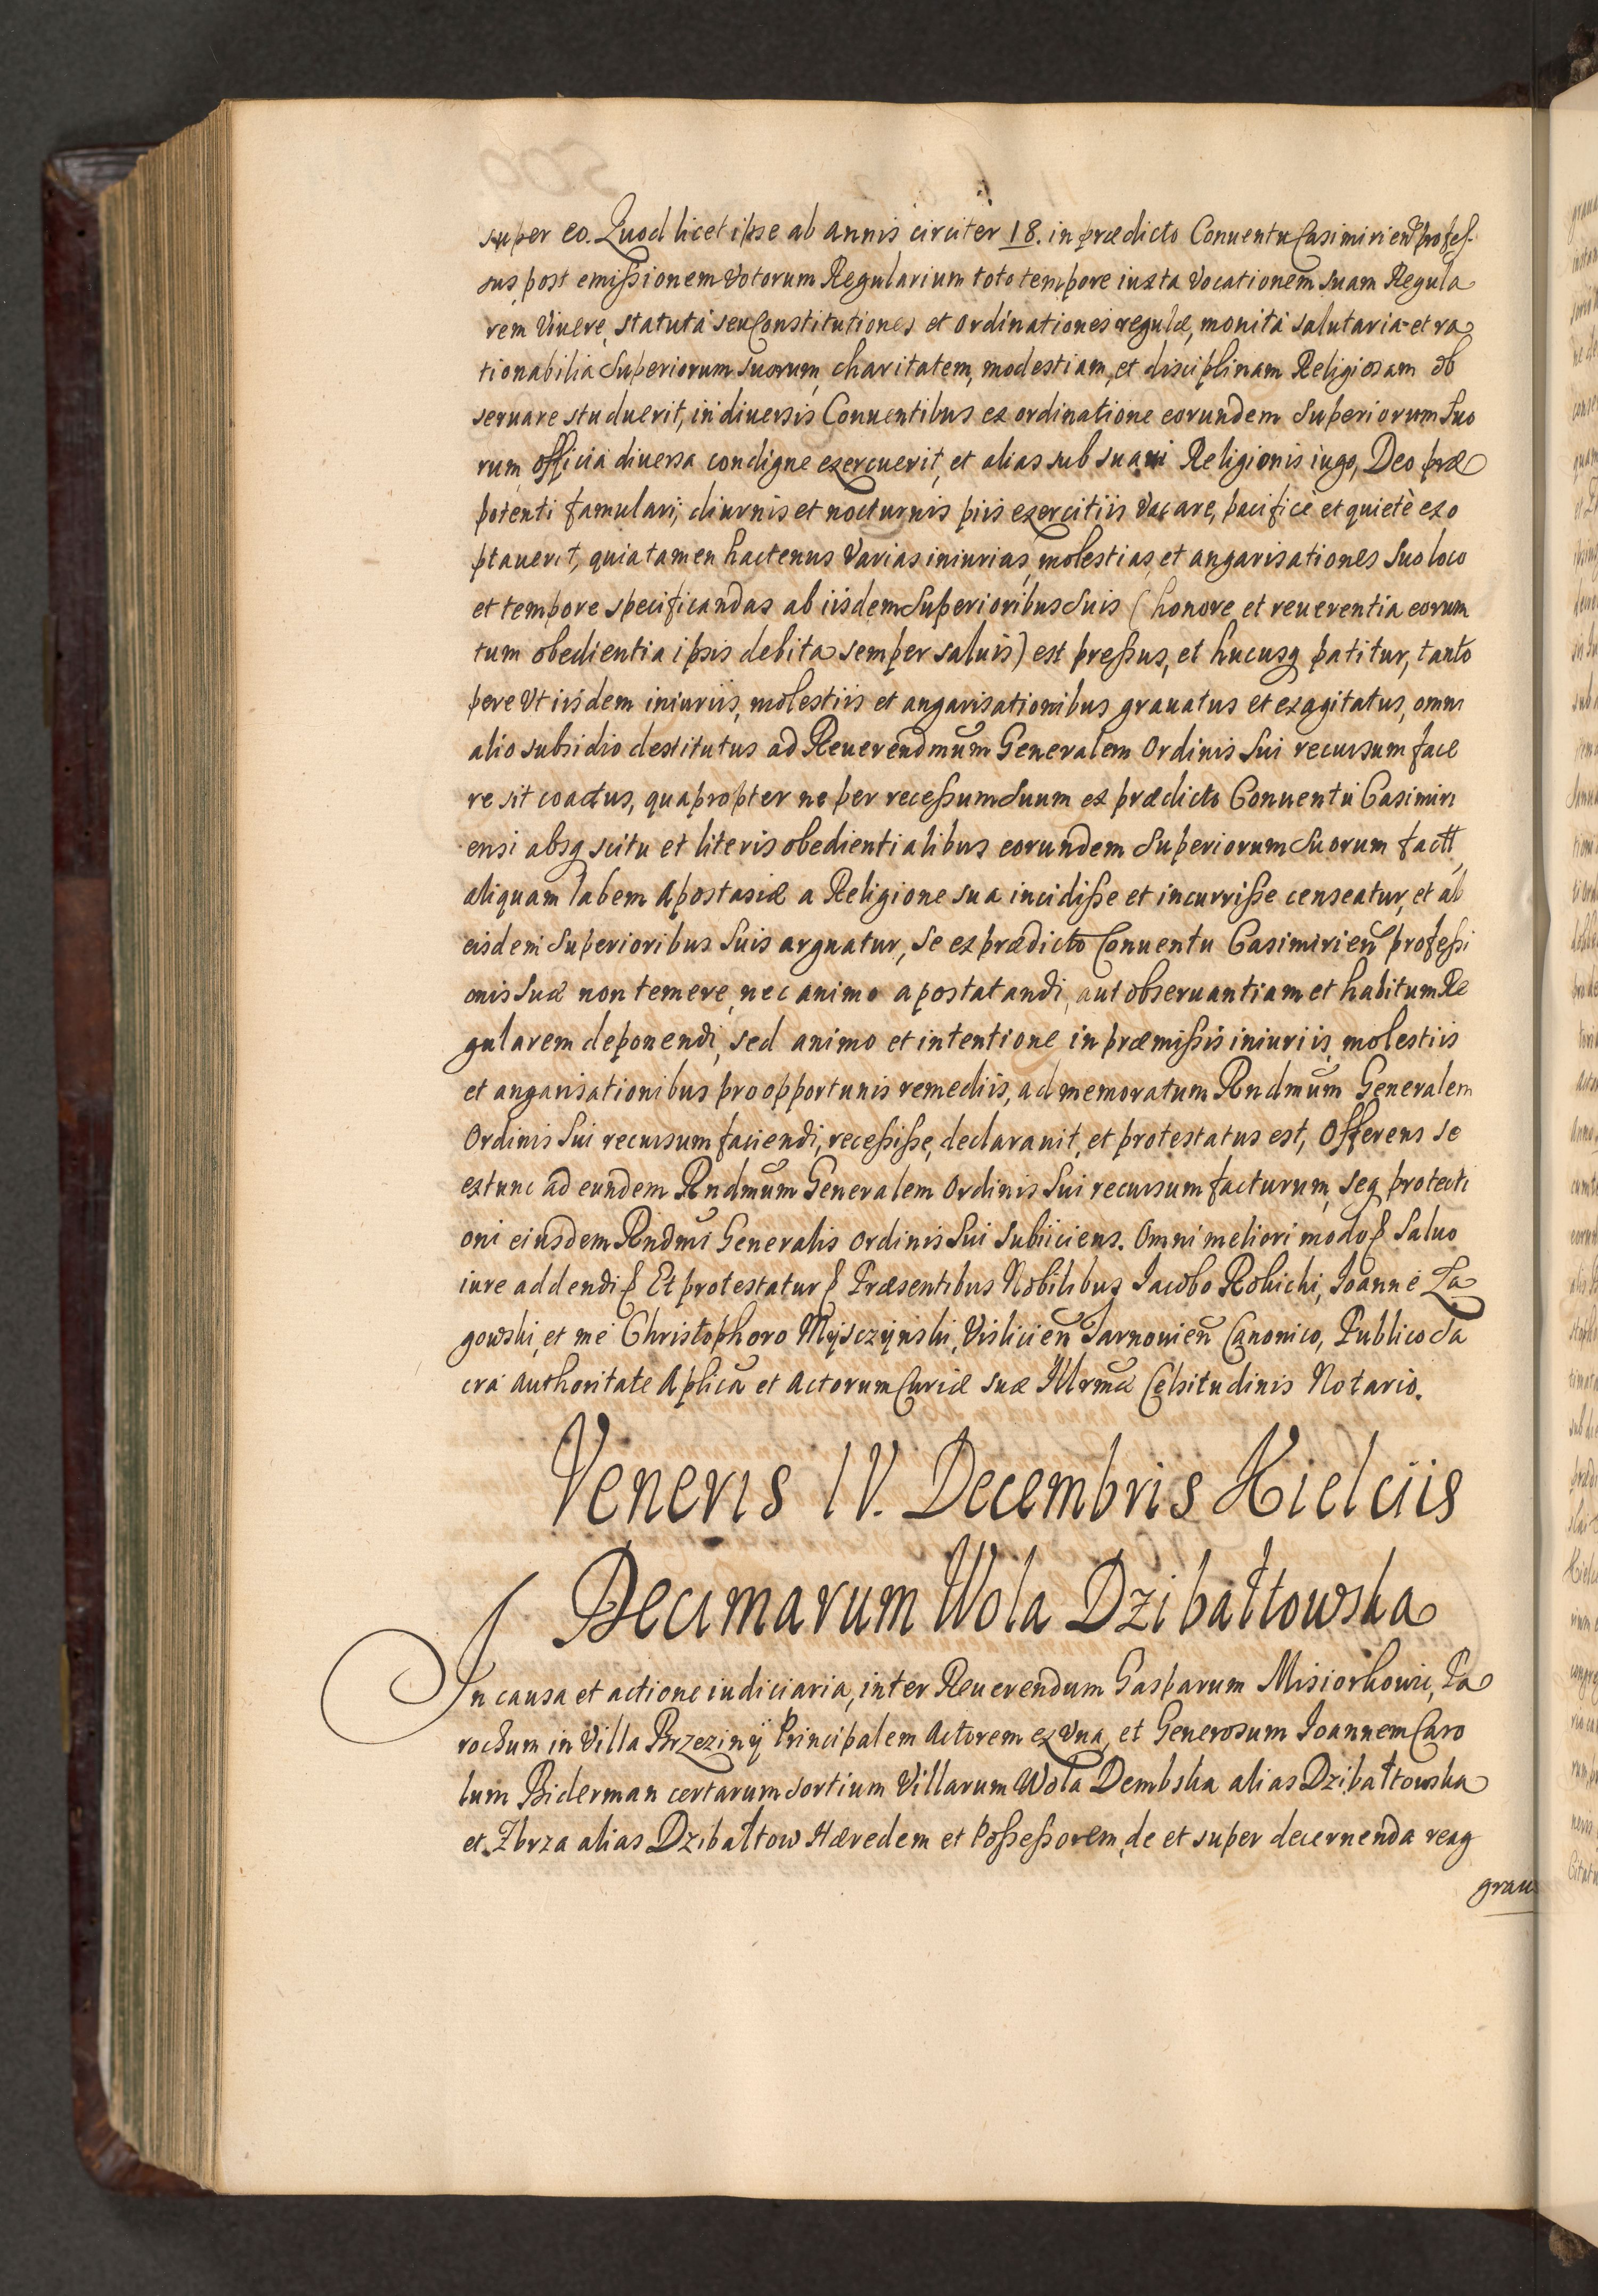 super eo. Quod licet ipse ab annis circiter 18. in prædicto Conuentu Casimirien̄ profes-
sus, post emißionem Votorum Regularium toto tempore iuxta Vocationem suam Regula
rem Viuere, statuta seu Constitutiones et Ordinationes regulæ, monita salutaria et ra
tionabilia Superiorum Suorum, charitatem, modestiam, et disciplinam Religiosam ob
seruare studuerit, in diuersis Conuentibus ex ordinatione eorundem Superiorum Suo
rum officia diuersa condigne exercuerit, et alias sub suaui Religionis iugo, Deo præ
potenti famulari, diurnis et nocturnis piis exercitiis Vacare, pacificè et quietè exo
ptauerit, quia tamen hactenus Varias iniurias, molestias, et angarisationes Suo loco
et tempore specificandas ab iisdem Superioribus Suis (honore et reuerentia eorum
tum obedientia ipsis debita semper saluis) est preßus, et hucusq patitur, tanto
pere Vt iisdem iniuriis, molestiis et angarisationibus grauatus et exagitatus, omni
alio subsidio destitutus ad Reuerendmūm Generalem Ordinis Sui recursum face
re sit coactus, quapropter ne per receßum Suum ex prædicto Conuentu Casimiri
ensi absq scitu et literis obedientialibus eorundem Superiorum Suorum factt,
aliquam labem Apostasiæ a Religione sua incidiße et incurriße censeatur, et ab
eisdem Superioribus Suis arguatur, Se ex prædicto Conuentu Casimirien̄ profeßi
onis Suæ non temere, nec animo apostatandi, aut obseruantiam et habitum Re
gularem deponendi, sed animo et intentione in præmißis iniuriis, molestiis
et angarisationibus pro opportunis remediis, ad memoratum Rndmūm Generalem
Ordinis Sui recursum faciendi, receßiße, declarauit, et protestatus est, Offerens se
extunc ad eundem Rndmūm Generalem Ordinis Sui recursum facturum, seq protecti
oni eiusdem Rndmi Generalis Ordinis Sui Subiiciens. Omni meliori modo & Saluo
iure addendi & Et protestatur & Præsentibus Nobilibus Iacobo Rokicki, Ioanne Za
gowski, et me Christophoro Mÿsczÿnski, Vislicien̄ Tarnouien̄ Canonico, Publico Sa
cra Authoritate Aplicā et Actorum Curiæ suæ Illrmæ Celsitudinis Notario.
Veneris IV. Decembris Kielciis
Decimarum Wola Dzibałtowska
In causa et actione iudiciaria, inter Reuerendum Gasparum Misiorkowic, Pa
rochum in Villa Brzezinÿ Principalem Actorem ex Vna, et Generosum Ioannem Caro
lum Biderman certarum sortium Villarum Wola Dembska alias Dzibałtowska
et Zbrza alias Dzibałtow Hæredem et Poßeßorem, de et super decernenda reag
grau